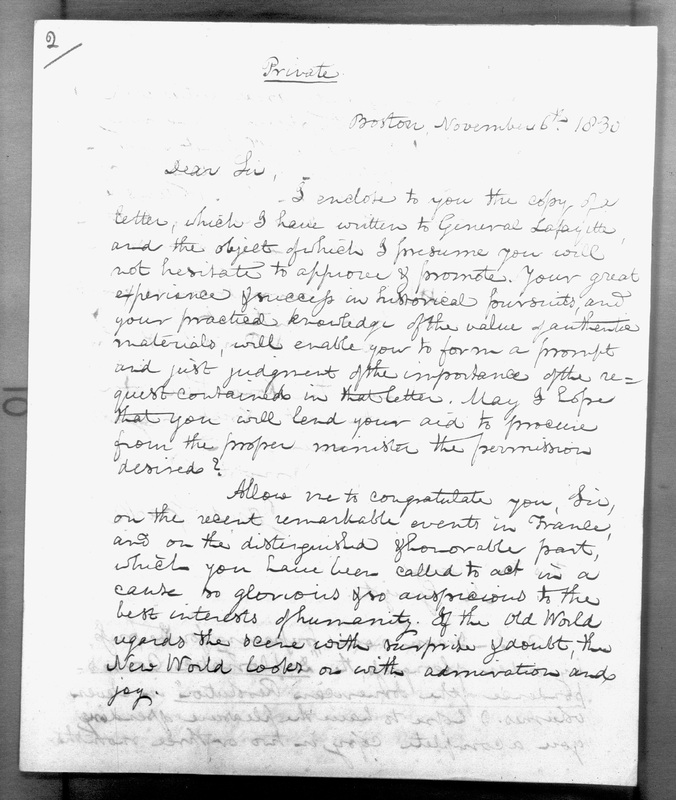 2
Private
Boston, November 6th. 1830
Dear Sir,
I enclose to you the copy of a
letter, which I have written to General Lafayette,
and the object of which I presume you will
not hesitate to approve & promote. Your great
experience & success in historical pursuits, and
your practical knowledge of the value of authentic
materials, will enable you to form a prompt
and just judgment of the importance of the re=
quest contained in that letter. May I hope
that you will lend your aid to procure
from the proper minister the permission
desired?
Allow me to congratulate you, Sir,
on the recent remarkable events in France,
and on the distinguished & honorable part,
which you have been called to act in a
cause so glorious & so auspicious to the
best interests of humanity. If the Old World
regards the scene with surprise & doubt, the
New World looks on with admiration and
joy.
10